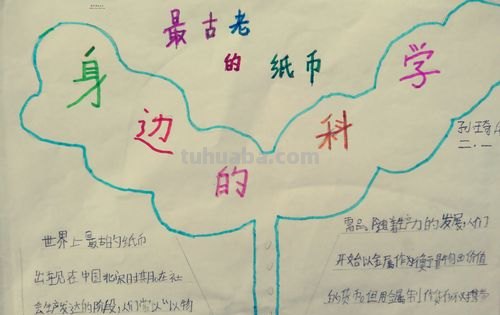 最古老
的纸币
身边的科学
tuhuaba.com
二.一
世界上最古的纸币
出现在中国北宋时期,在社
会生产发达的阶段,人们常以"以物
需品,随着生产力的发展,人们
开始以金属作为衡量物的价值
的货币,但用金属制作货币不